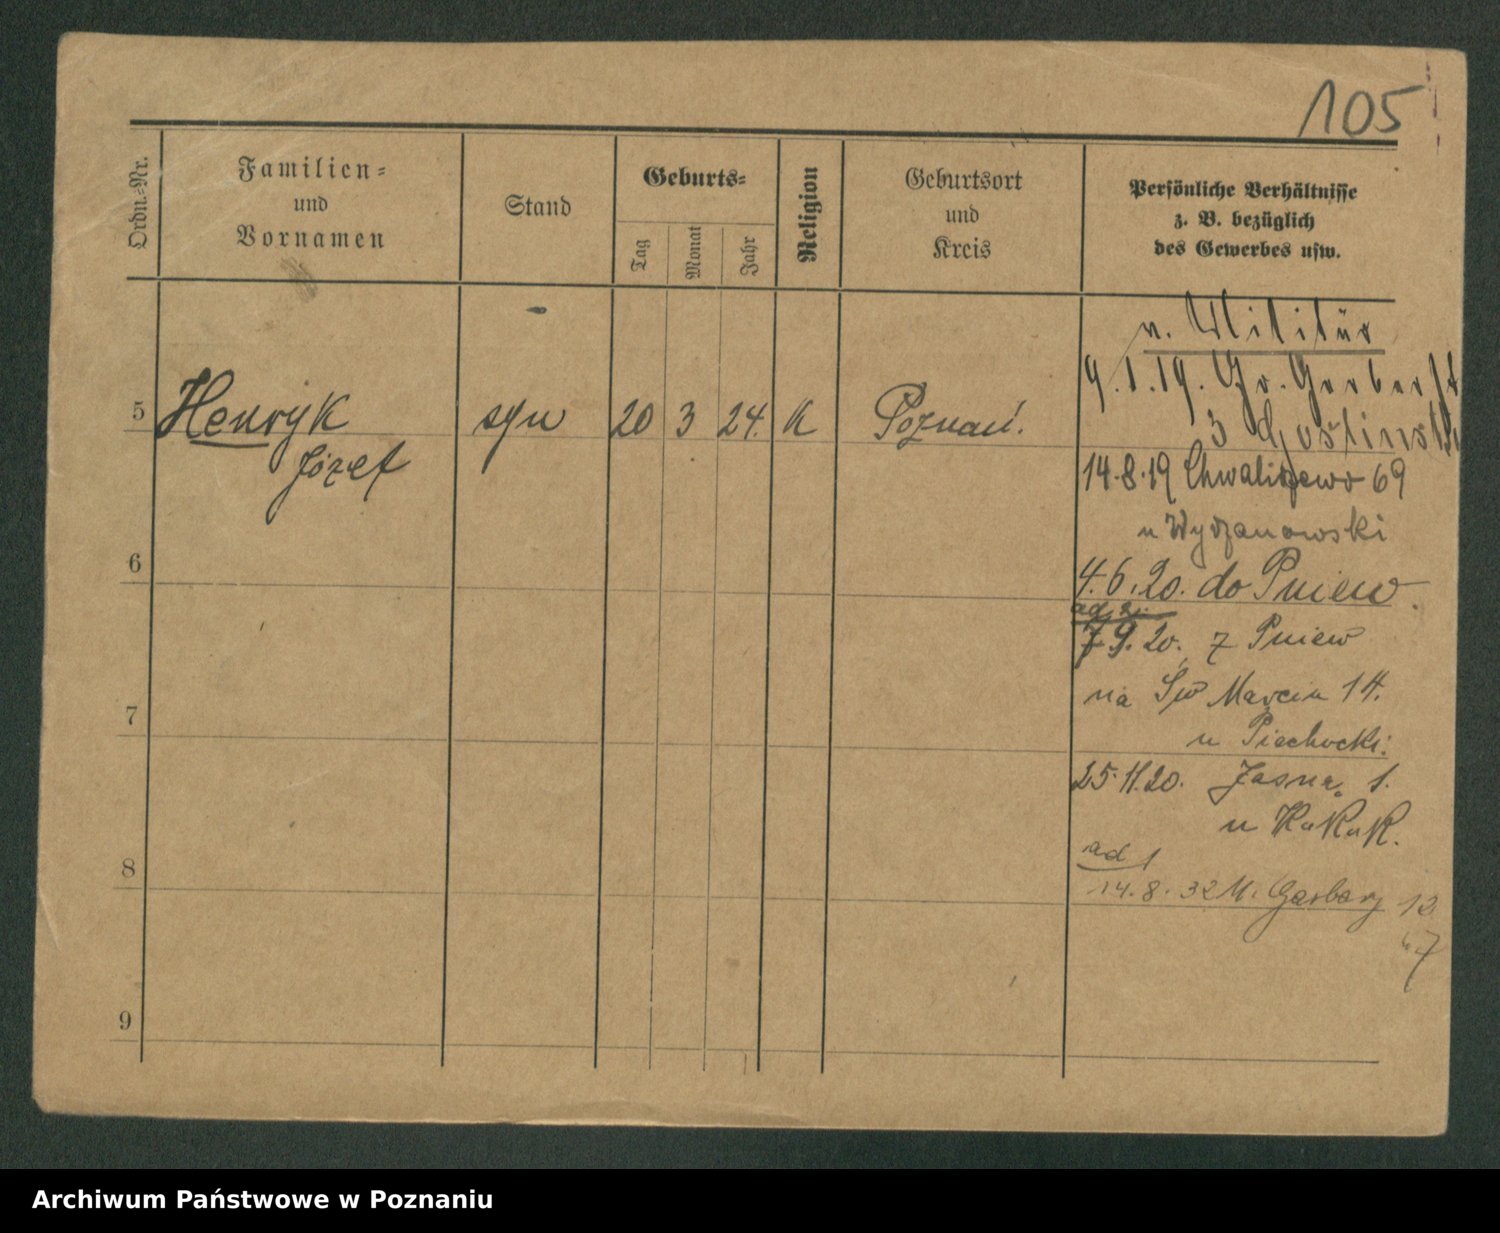 105
Ordn.-Nr.
Familien-
und
Vornamen
Stand
Geburts-
Tag
Monat
Jahr
Religion
Geburtsort
und
Kreis
Persönliche Verhältnisse
z. B. bezüglich
des Gewerbes usw.
v. Militär
9.1.19. Gr. Gerberst
3
14.8.19 Chwaliszewo 69
5 Henryk syn 20 3 24. k Poznań.
Józef
u Wydzanowski
6
4.6.20. do Pniew.
ad 2.
7 9. 20. z Pniew
na Św Marcin 14.
7
u Piechocki.
25.11.20. Jasna 1.
u KuKuK.
8
ad 1
14.8.32 M. Garbary 12
9
Archiwum Państwowe w Poznaniu